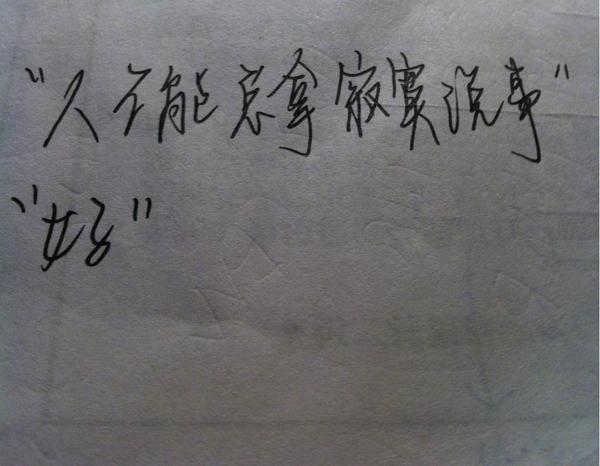 "人不能总拿寂寞说事"
"好"